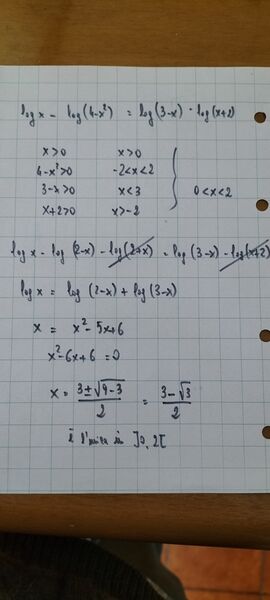 log x - log(4-x²) = log(3-x) - log(x+2)
x>0 x>0
4-x²>0 -2<x<2
3-x>0 x<3 0<x<2
x+2>0 x>-2
log x - log(2-x) - log(2+x) = log(3-x) - log(x+2)
log x = log(2-x) + log(3-x)
x = x²-5x+6
x²-6x+6=0
x = 3±√9-3 / 2 = 3-√3 / 2
è l'unica in ]0,2[